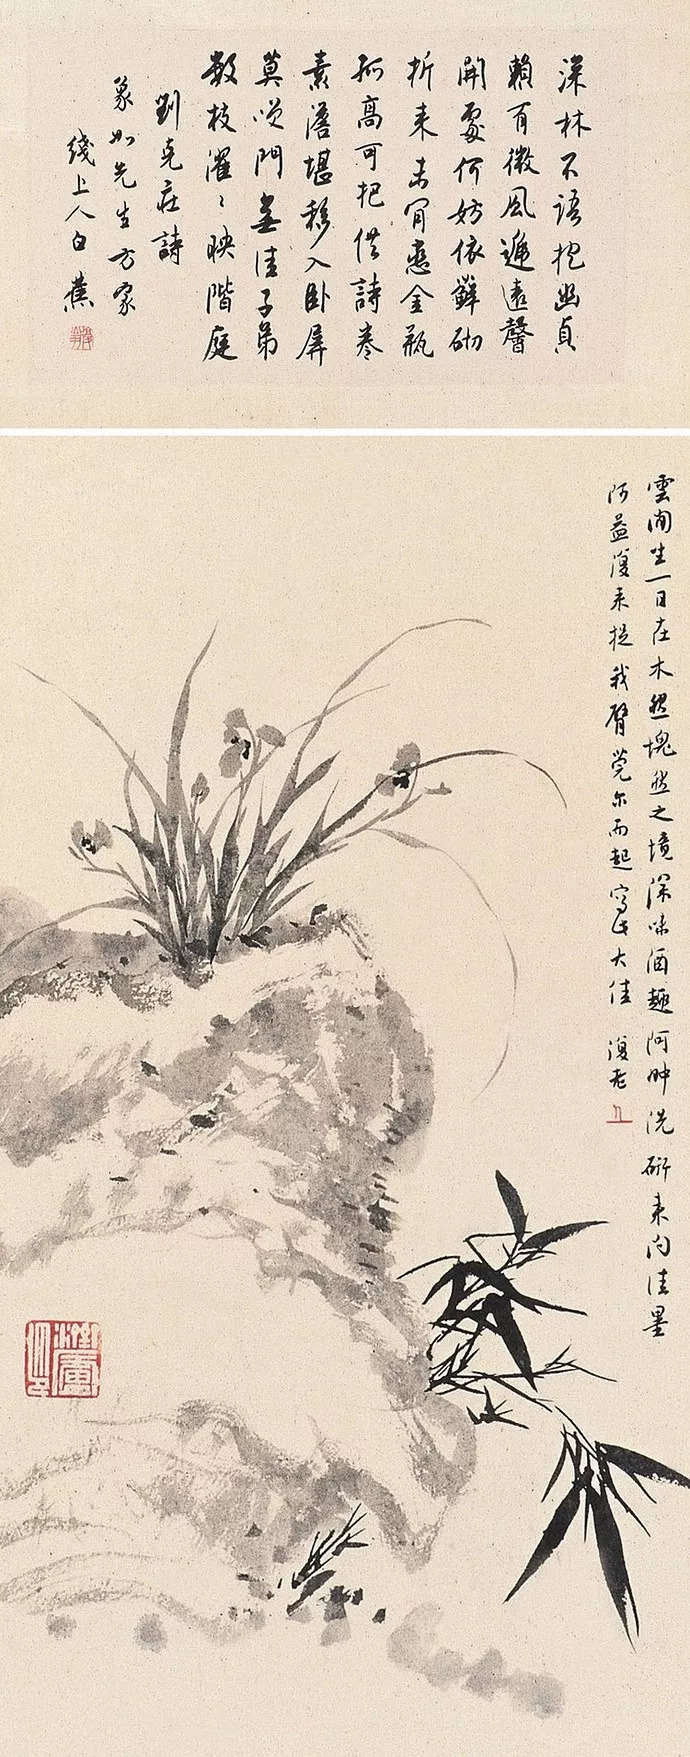 深林不語抱幽貞
賴有微風遞遠馨
開處何妨依蘚砌
折来未肯戀金瓶
孤高可把供詩卷
素澹堪移入卧屏
莫笑門無佳子弟
數枝濯〻映階庭
劉克莊詩
如先生方家
上人白蕉
雲间生一日在木然塊然之境深味酒趣阿洗研来向佳墨
阿益復来捉我臂莞尔而起寫此大佳 復老